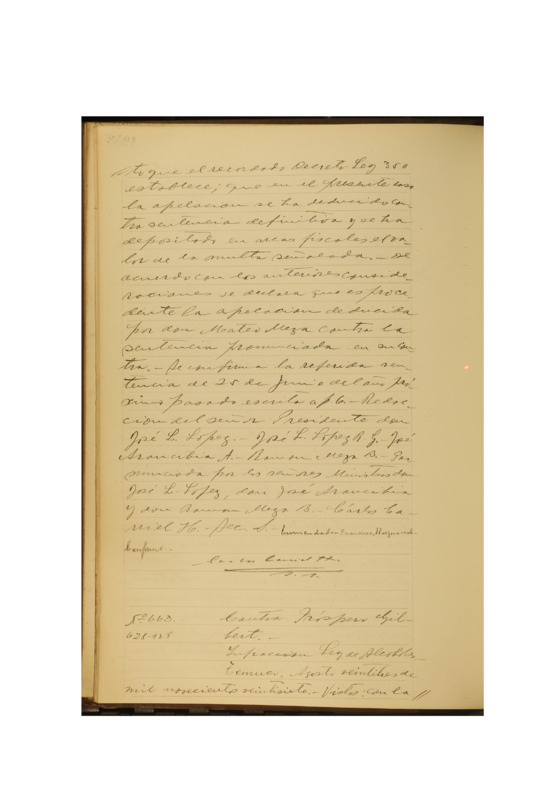 to que el recordado Decreto Ley 350
establece; que en el presente caso
la apelacion se ha deducido con-
tra sentencia definitiva y se ha
depositado en arcas fiscales el va-
lor de la multa señalada.- De
acuerdo con los anteriores conside-
raciones se declara que es proce-
dente la apelacion deducida
por don Mateo Meza contra la
sentencia pronunciada en su con-
tra.- Se confirma la referida sen-
tencia de 25 de Junio del año pró-
ximo pasado escrita a f 6.- Redac-
cion del señor Presidente don
José L. Lopez.- José L. Lopez R G.- José
Arancibia A.- Ramon Meza B.- Pro-
nunciada por los señores Ministros don
José L. Lopez, don José Arancibia
y don Ramon Meza B.- Cárlos Ca-
H.- Sec. S.-
Conforme.-
Nº 663.- Contra Próspero Gil-
bert.-
Infraccion Ley de Alcoholes
Temuco, Agosto veintitres de
mil novecientos veintisiete.- Vistos: con la //